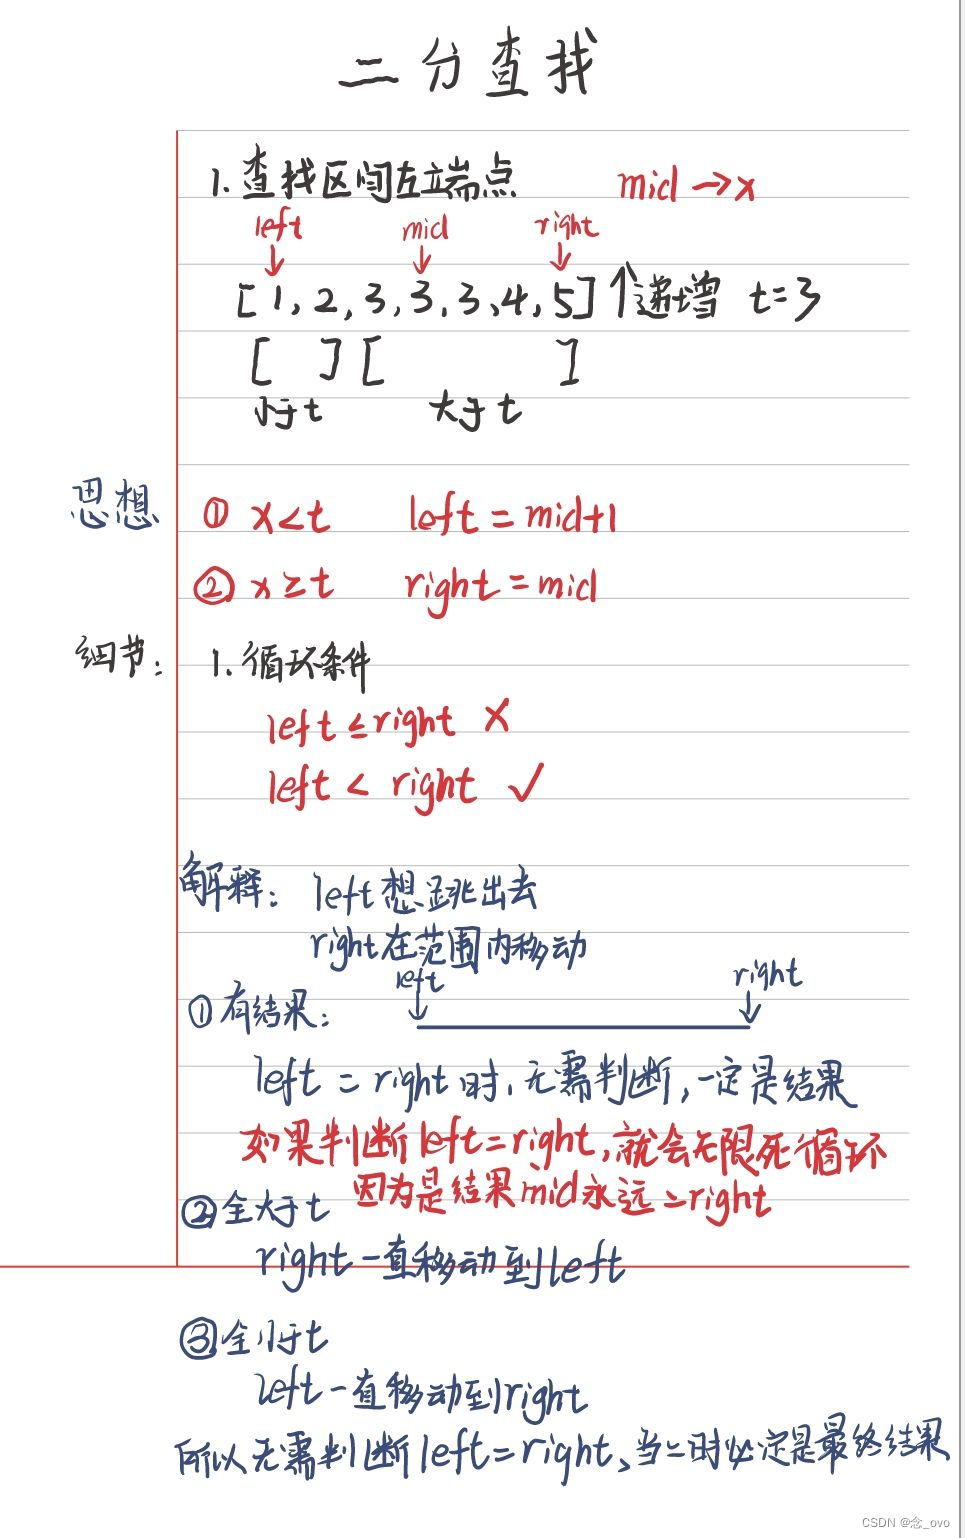 二分查找
1. 查找区间左端点 mid → x
left mid right
[1, 2, 3, 3, 3, 4, 5] ↑递增 t=3
[ ] [ ]
小于t 大于t
思想 ① x<t left = mid+1
② x≥t right = mid
细节: 1. 循环条件
left ≤ right ×
left < right ✓
解释: left想跳出去
right在范围内移动
left right
①有结果:
left = right时,无需判断,一定是结果
如果判断left=right,就会无限死循环
因为是结果mid永远=right
②全大于t
right一直移动到left
③全小于t
left一直移动到right
所以无需判断left=right、当=时必定是最终结果
CSDN @念_ovo